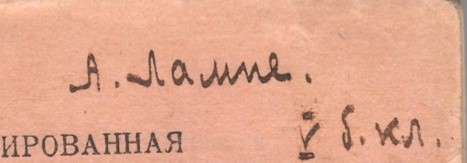 А. Лампе.
ИРОВАННАЯ
V б. кл.